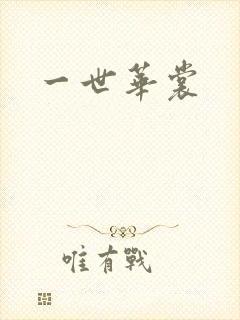 一世華裳
唯有戰